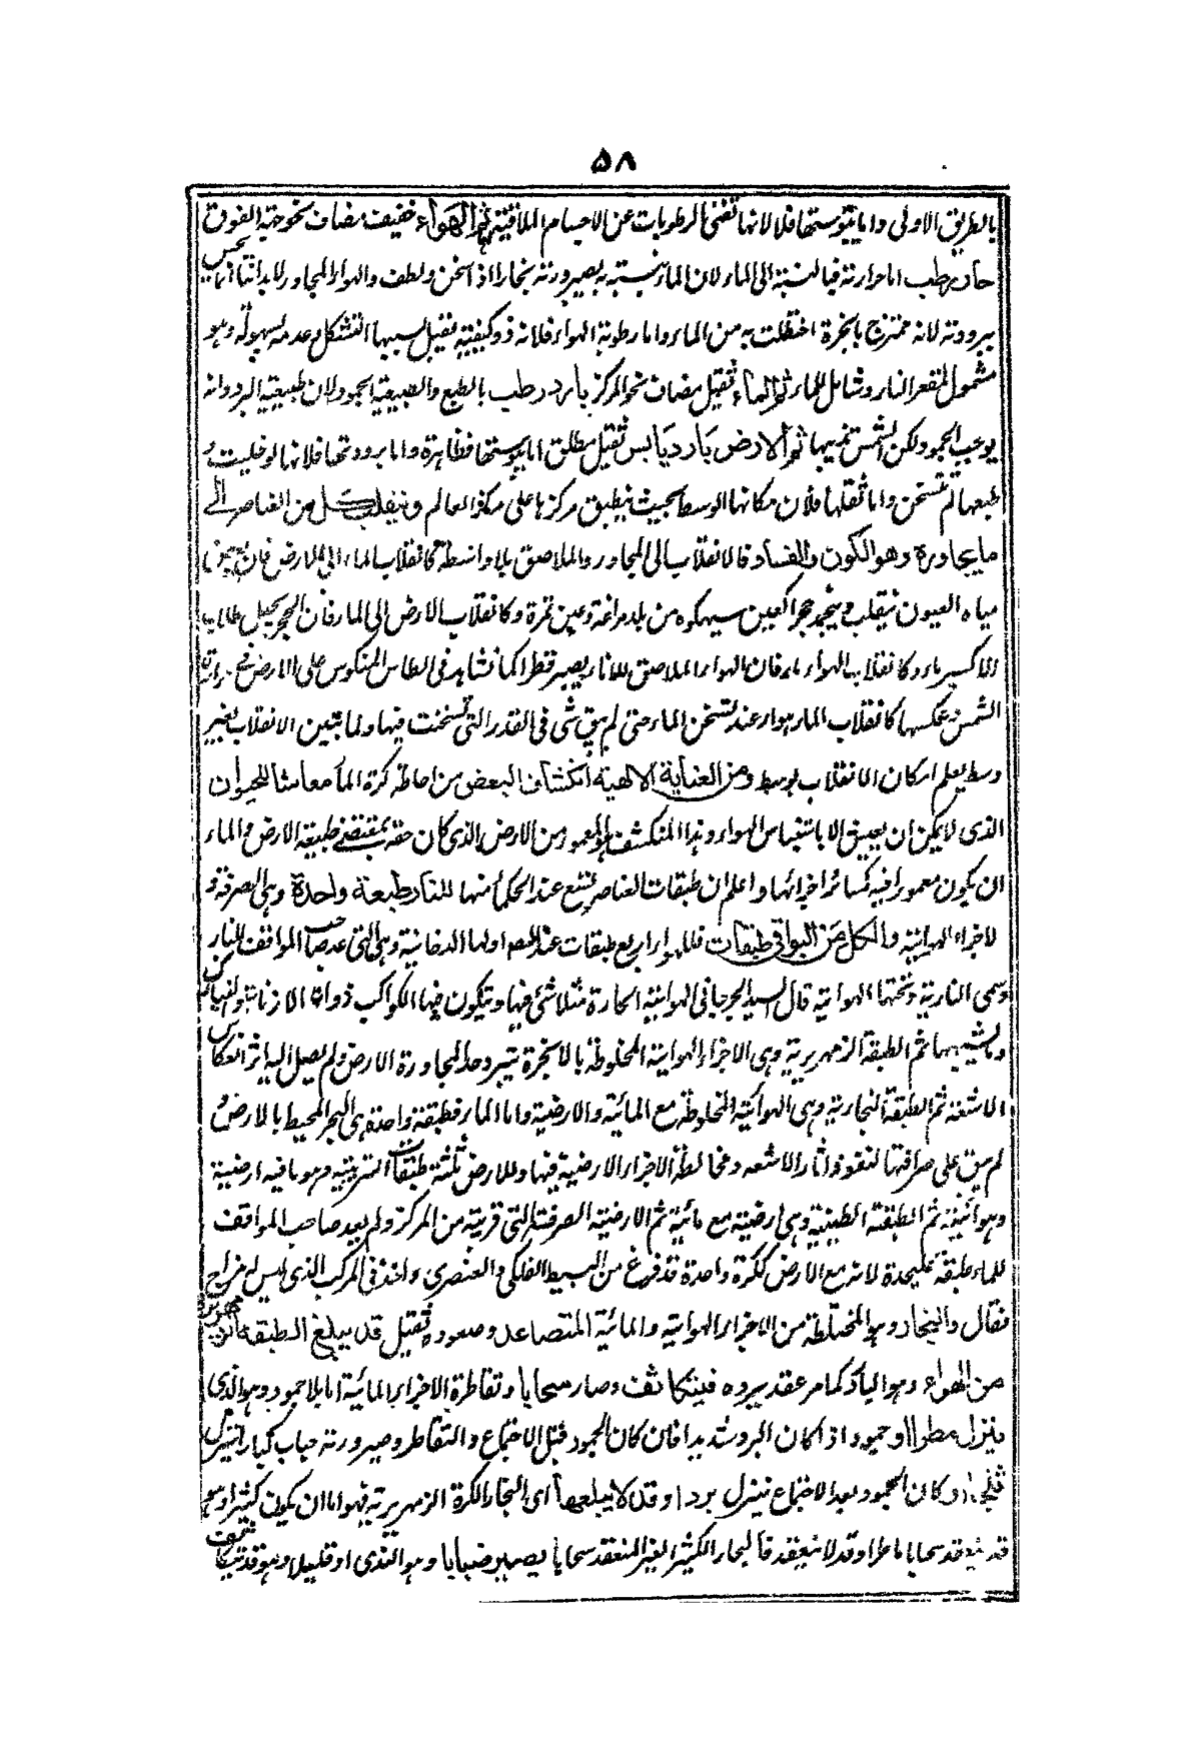 ٥٨
بالطريق الاولى واما يبوستها فلانها تفنى الرطوبات عن الاجسام الملاقية ثم الهواء خفيف مضاف نحو جهة الفوق
حار رطب اما حرارته فبالنسبة الى الماء لان الماء يتشبه به بصيرورته بخارا اذا سخن ولطف والهواء المجاور لابداننا انما يحس
ببرودته لانه ممتزج بابخرة اختلطت به من الماء واما رطوبة الهواء فلانه ذو كيفية يقبل بسببها التشكل وعدمه بسهولة وهو
مشمول لمقعر النار وشامل للماء ثم الماء ثقيل مضاف نحو المركز بارد رطب بالطبع والطبيعية الجمود لان طبيعية البرد وانه
يوجب الجمود ولكن الشمس تميهها ثم الارض بارد يابس ثقيل مطلق اما يبوستها فظاهرة واما برودتها فلانها لو خليت و
طبعها لم تسخن واما ثقلها فلان مكانها الوسط بحيث ينطبق مركزها على مركز العالم وينقلب كل من العناصر الى
ما يجاوره وهو الكون والفساد فالانقلاب الى المجاور والملاصق بلا واسطة كانقلاب الماء الى الارض فان بعض
مياه العيون ينقلب وينجمد حجرا كعين سيهكوه من بلد مراغة وعين تمرة وكانقلاب الارض الى الماء فان الحجر يجعل طلاب
الاكسير ماء وكانقلاب الهواء ماء فان الهواء الملاصق للاناء يصير قطرا كما نشاهد فى الطاس المنكوس على الارض فى حرارة
الشمس وعكسها كانقلاب الماء هواء عند تسخن الماء حتى لم يبق شئ فى القدر التى تسخنت فيها ولما تبين الانقلاب بغير
وسط يعلم امكان الانقلاب بوسط ومن العناية الالهية انكشاف البعض من احاطة كرة الماء معاشا للحيوان
الذى لا يمكن ان يعيش الا باستنشاق الهواء وهذا المنكشف هو المعمور من الارض الذى كان حقه بمقتضى طبيعة الارض والماء
ان يكون مغمورا فيه كسائر اجزائها واعلم ان طبقات العناصر تسع عند الحكماء منها للنار طبقة واحدة وهى الصرفة و
لاجزاء الهوائية والكل من البواقى طبقات فللهواء اربع طبقات عند المصـ اولها الدخانية وهى التى عدها صاحب المواقف للنار
وسمى النارية وتحتها الهوائية قال السيد الجرجانى الهوائية الحارة متلاشئ فيها ويتكون فيها الكواكب ذوات الاذناب والنيازك
وما يشبهها ثم الطبقة الزمهريرية وهى الاجزاء الهوائية المخلوطة بالابخرة تتبرد وحد المجاورة الارض ولم يصل اليه اثر انعكاس
الاشعة ثم الطبقة البخارية وهى الهوائية المخلوطة مع المائية والارضية واما الماء فطبقة واحدة هى البحر المحيط بالارض و
لم يبق على صرافتها لنفوذ اثار الاشعه ومخالطة الاجزاء الارضية فيها وللارض ثلثة طبقات التربية وهو ما فيه ارضية
وهوائية ثم الطبقة الطينية وهى ارضية مع مائية ثم الارضية الصرفة التى قريبة من المركز ولم يعد صاحب المواقف
للماء طبقة عليحدة لانه مع الارض ككرة واحدة قد فرغ من البسيط الفلكى والعنصرى واخذ فى المركب الذى ليس له مزاج
فقال والبخار وهو المختلطة من الاجزاء الهوائية والمائية المتصاعد وصعوده ثقيل قد يبلغ الطبقة الزمهريرية
من الهواء وهو البارد كما مر عقد ببرده فيتكاثف وصار سحابا وتقاطرة الاجزاء المائية اما بلا جمود وهو الذى
ينزل مطرا او جمود اذا كان البرد شديدا فان كان الجمود قبل الاجتماع والتقاطر وصيرورته حباب كبارا ينزل
ثلجا او كان الجمود بعد الاجتماع ينزل بردا وقد لا يبلغها اى البخار الكرة الزمهريرية فهو اما ان يكون كثيرا وهو
قد ينعقد سحابا ماطرا وقد لا ينعقد فالبخار الكثير الغير المنعقد سحابا يصير ضبابا وهو الندى او قليلا وهو قد يتكاثف